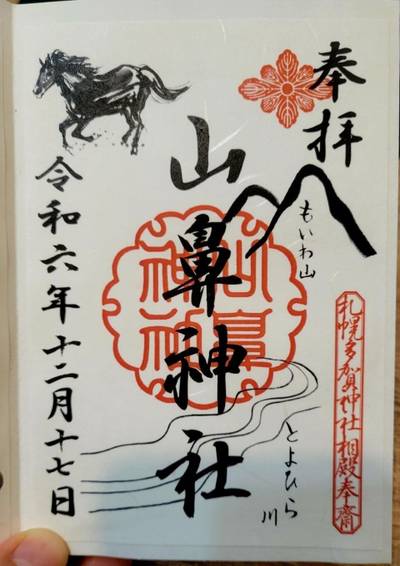 奉拝
もいわ山
札幌多賀神社相殿奉齋
とよひら川
山鼻神社
山鼻神社
令和六年十二月十七日